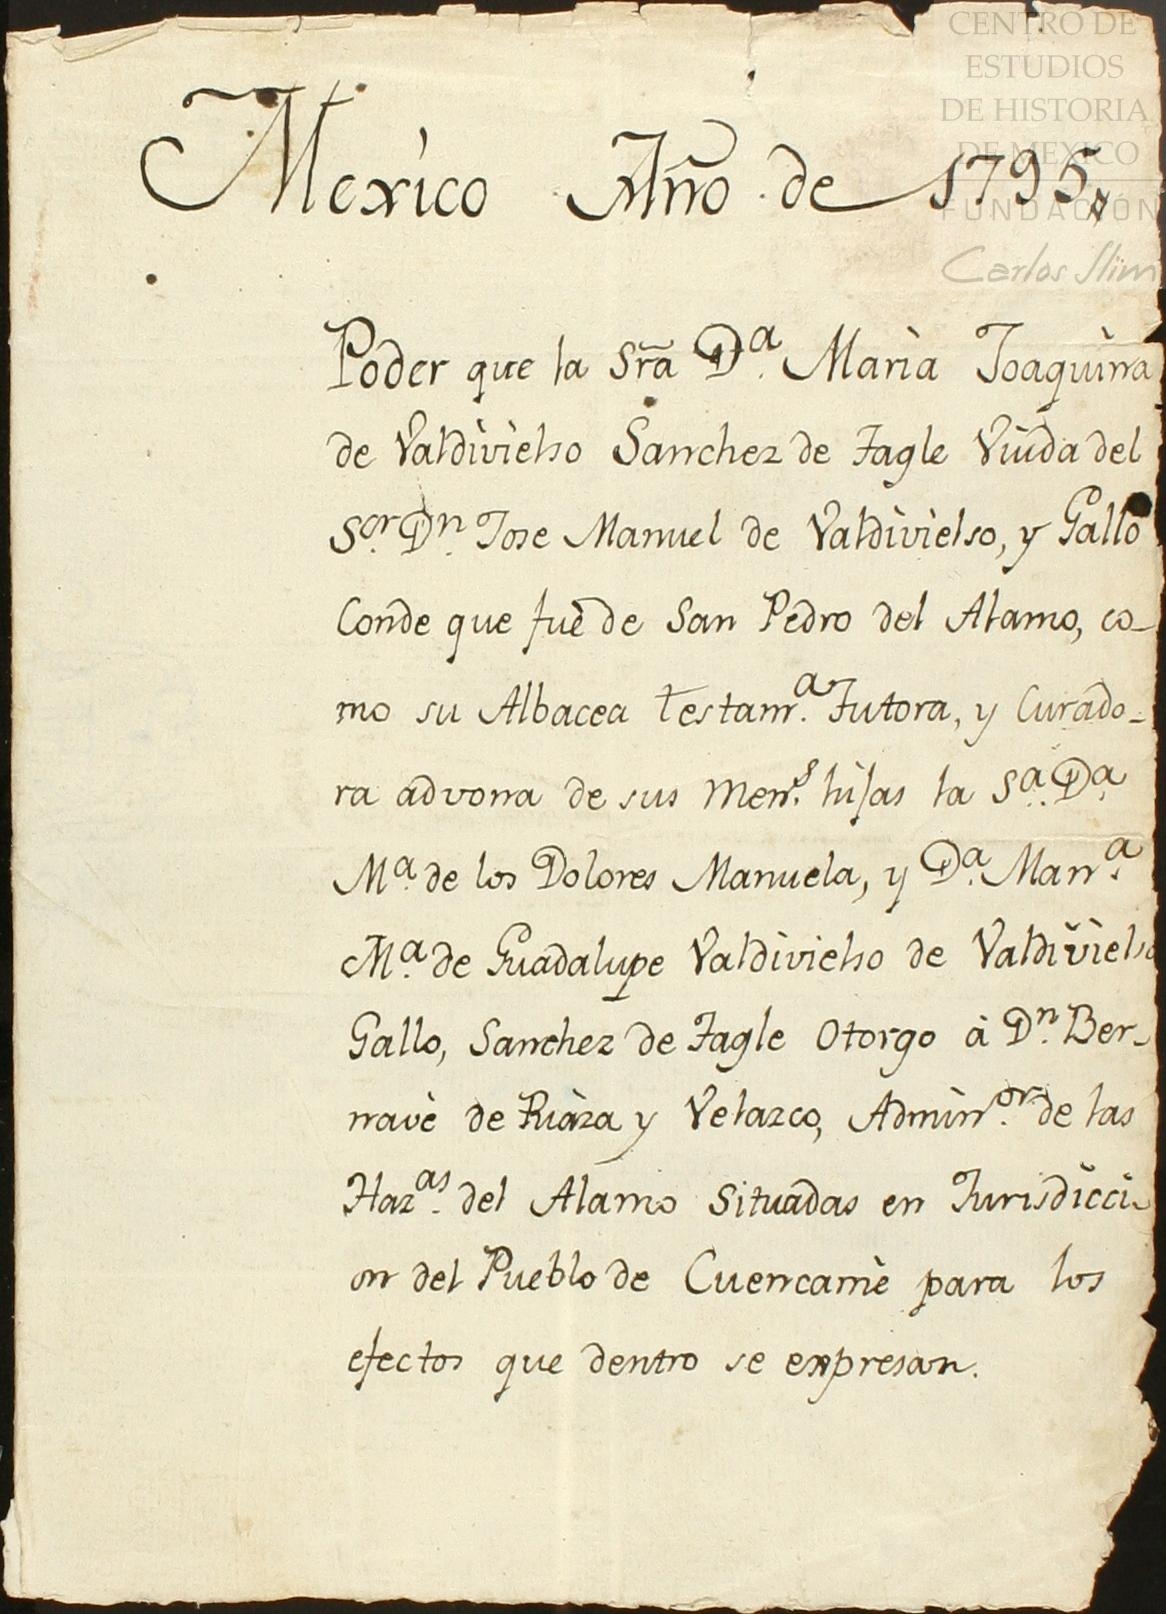 CENTRO DE
ESTUDIOS
DE HISTORIA
DE MEXICO
FUNDACIÓN
Carlos Slim
Mexico Año de 1795
Poder que la Sra Dª. Marìa Joaquina
de Valdivielso Sanchez de Tagle Viuda del
Sor. Dn. Jose Manuel de Valdivielso, y Gallo
Conde que fuè de San Pedro del Alamo, co-
mo su Albacea testamª. Tutora, y Curado-
ra advona de sus Mens. hijas la Sª. Dª.
Mª. de los Dolores Manuela, y Dª. Manª.
Mª. de Guadalupe Valdivielso de Valdivielso
Gallo, Sanchez de Tagle Otorgo à Dn. Ber-
navè de Riàza y Velazco, Adminor. de las
Hazas. del Alamo Situadas en Jurisdicci-
on del Pueblo de Cuencamè para los
efectos que dentro se expresan.